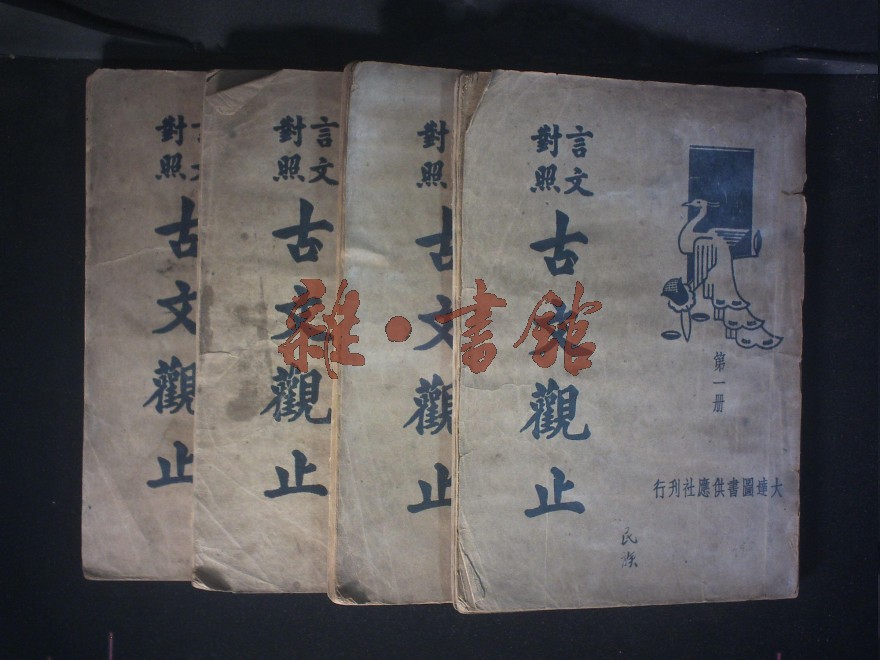 言文
對照
古文觀止
言文
對照
古文觀止
對照
古文觀止
言文
對照
古文觀止
第一册
大達圖書供應社刊行
民族
雜·書館